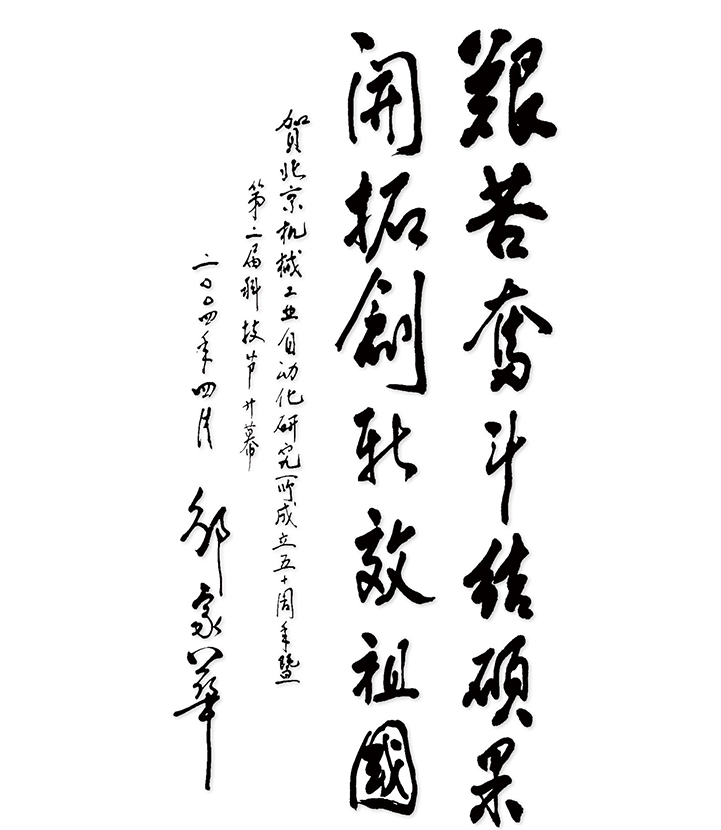 艱苦奮斗結碩果
開拓創新效祖國
賀北京机械工业自动化研究所成立五十周年暨
第二届科技节开幕
二〇〇四年四月
邹家華